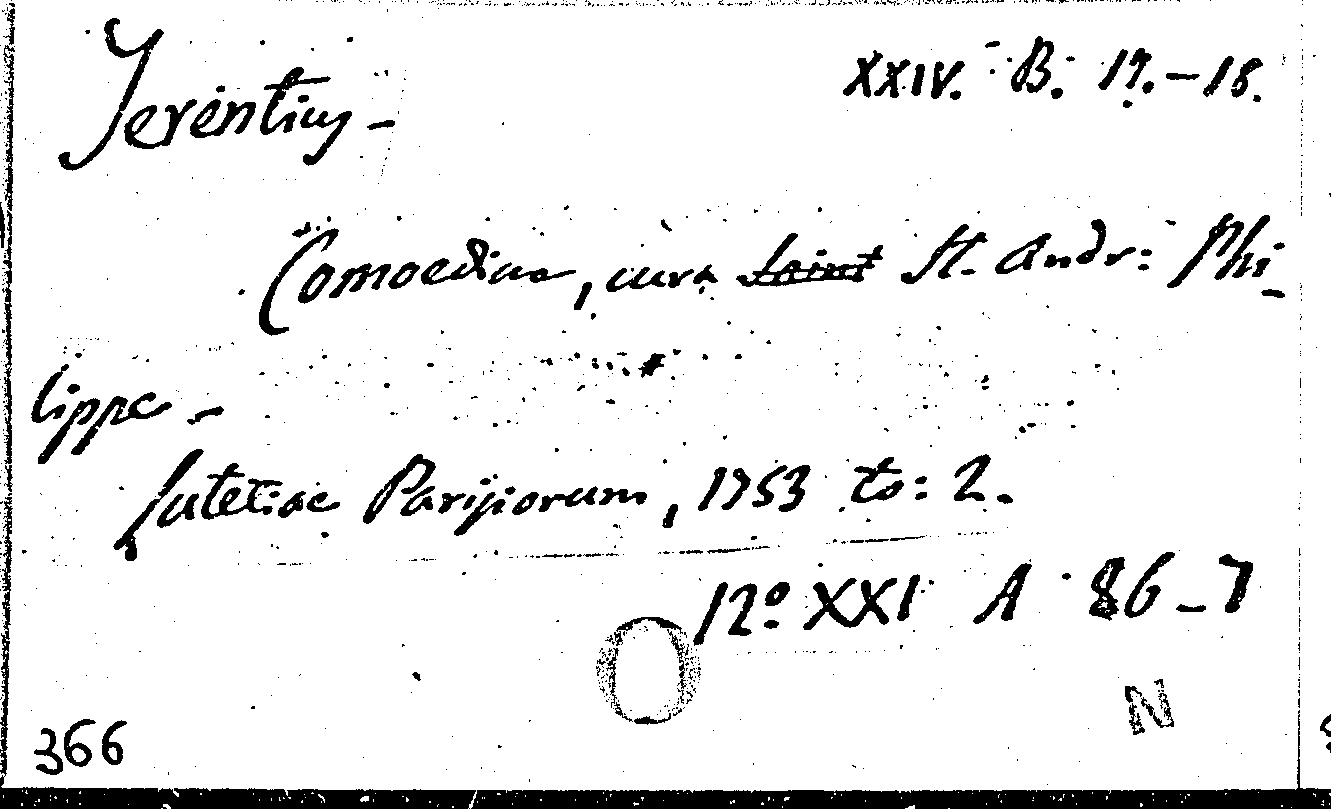 Terentius -
XXIV. B. 17. - 18.
Comoediae, cura Saint St. Andr: Phi-
lippe -
Lutetiae Parisiorum, 1753 to: 2.
12º XXI A 86 - 7
O
N
366